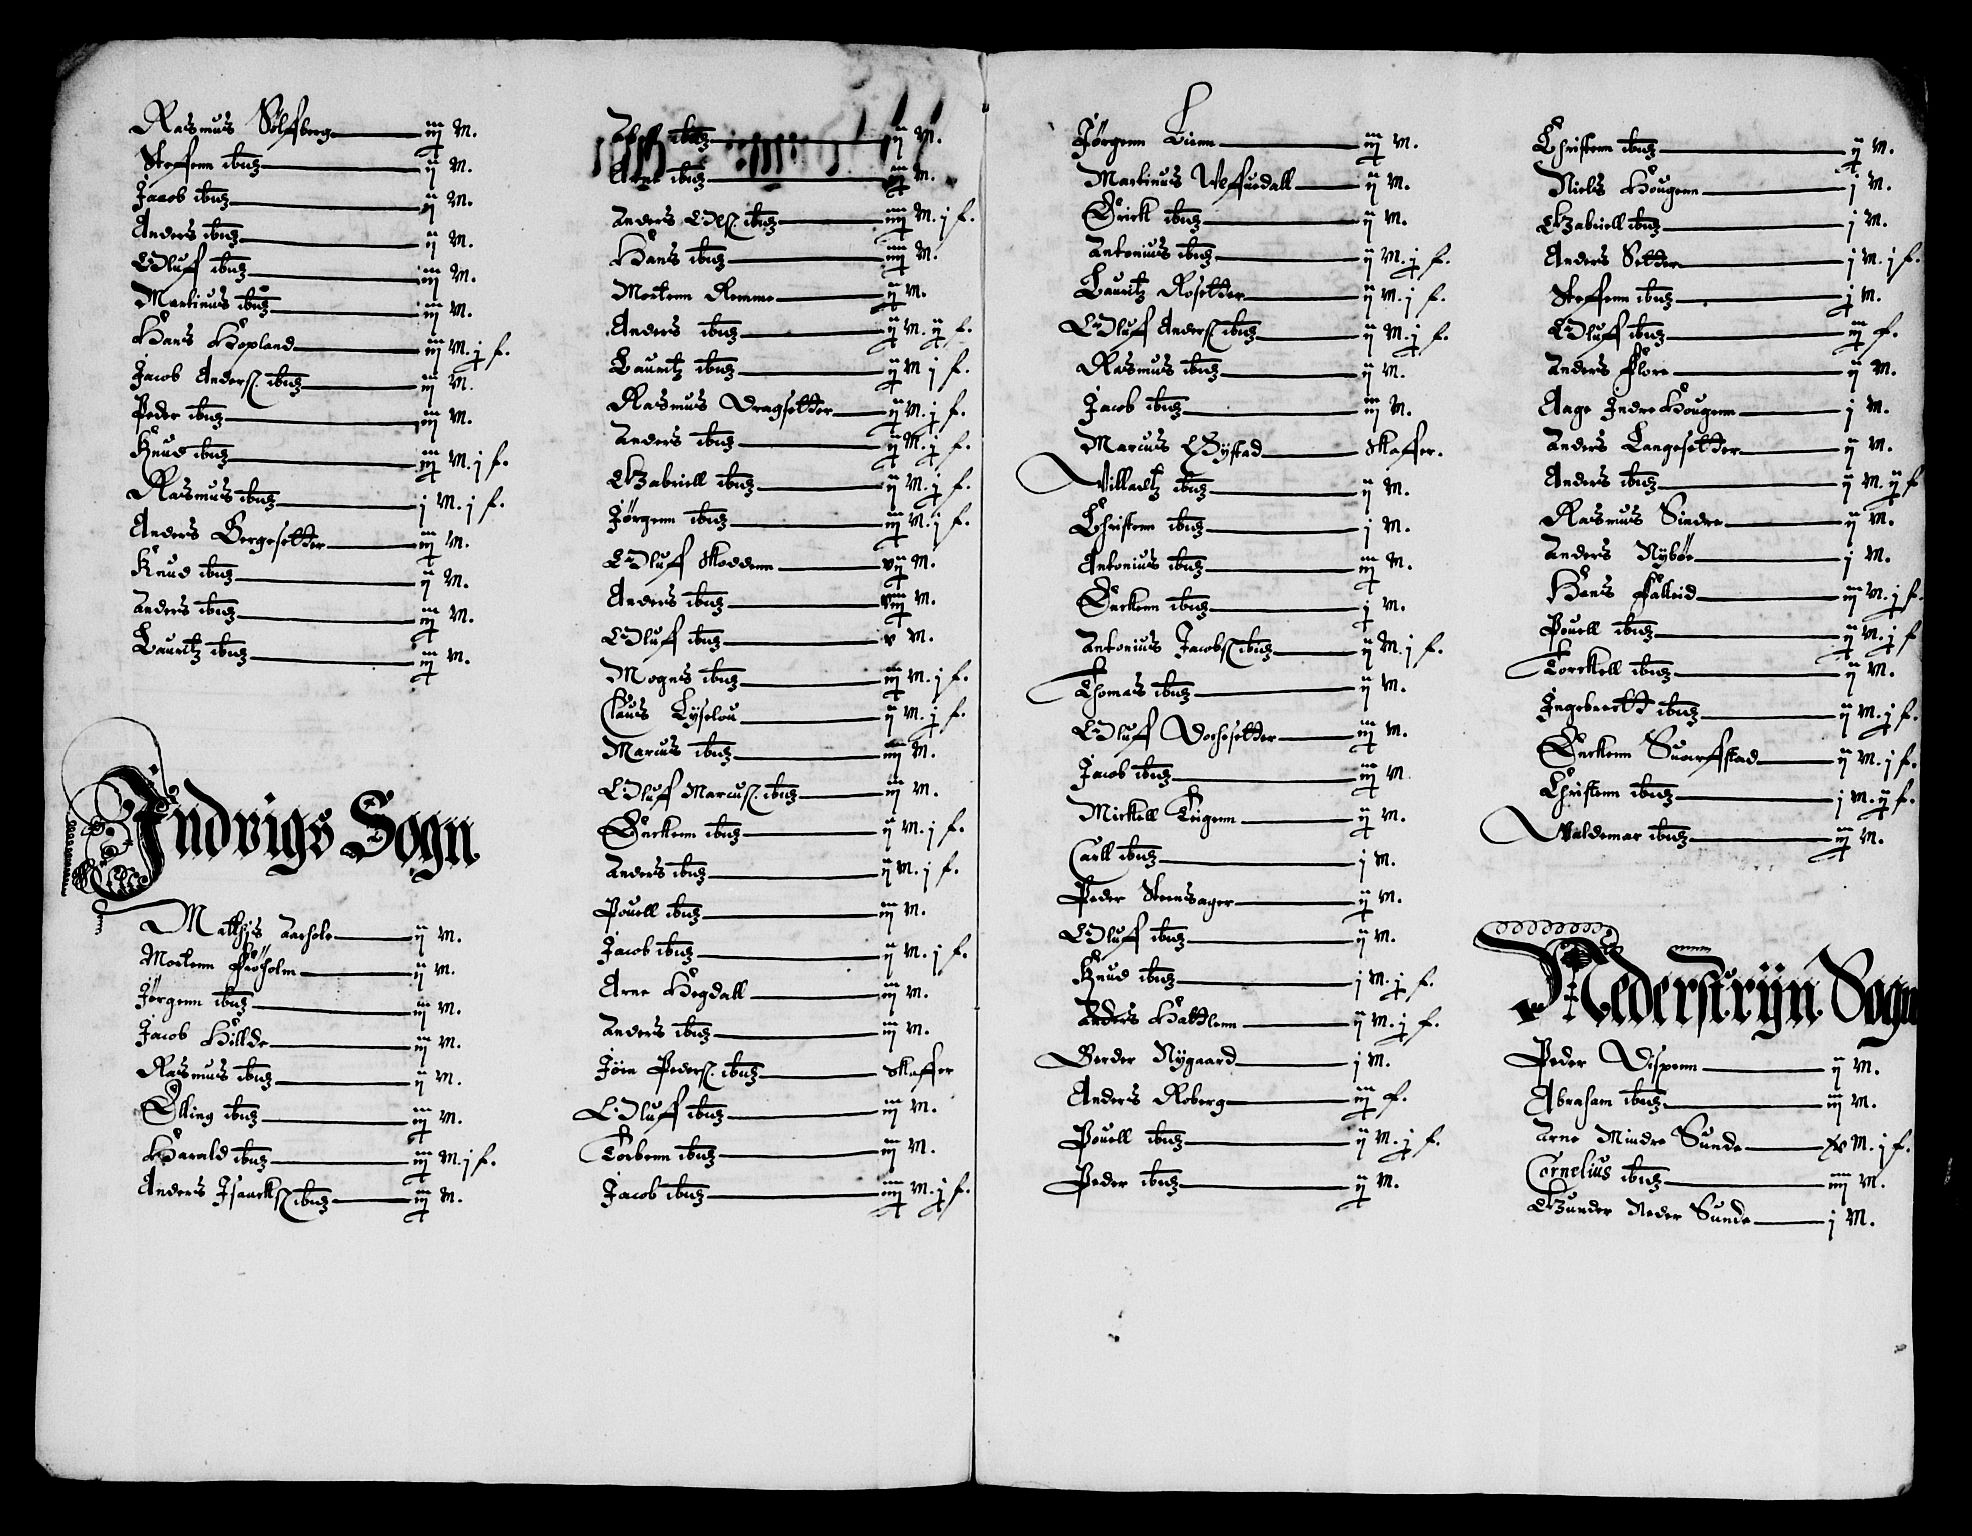 Rasmus Sölfberg iij M.
Steffenn ibidz ij M.
Jacob ibidz ij M.
Anders ibidz ij M.
Oluff ibidz iij M.
Martinus ibidz iij M.
Hans Hopland iij M. j f.
Jacob Anders. ibidz iij M.
Peder ibidz iij M.
Knud ibidz iij M. j f.
Rasmus ibidz j M. j f.
Anders Bergesetter iij M.
Knud ibidz ij M.
Anders ibidz iij M.
Lauritz ibidz iij M.
Indvigs Sogn
Mathijs Aarhole ij M.
Mortenn Fröholm ij M.
Jörgenn ibidz iij M.
Jacob Hillde iij M.
Rasmus ibidz ij M.
Elling ibidz iij M.
Harald ibidz iij M. j f.
Anders Isaacks. ibidz iij M.
ibidz ij M.
Arne ibidz M.
Anders Ols. ibidz iiij M. j f.
Hans ibidz iiij M.
Mortenn Remme ij M.
Anders ibidz ij M. ij f.
Lauritz ibidz ij M j f.
Rasmus Dragsetter ij M. j f.
Anders ibidz ij M. j f.
Gabriell ibidz ij M. j f.
Jörgenn ibidz iij M. j f.
Oluff Skoddenn vij M.
Anders ibidz viij M.
Oluff ibidz v M.
Mogns ibidz iij M. j f.
Claus Lyselou ij M. j f.
Marcus ibidz iiij M.
Oluff Marcus. ibidz iij M.
Enckenn ibidz ij M. j f.
Anders ibidz ij M. j f.
Pouell ibidz iij M.
Jacob ibidz ij M. j f.
Arne Hegdall iij M.
Anders ibidz iij M.
Jöen Peders. ibidz Skaffer
Oluff ibidz iij M.
Torbenn ibidz iij M.
Jacob ibidz iiij M. j f.
Jörgenn iiij M.
Martinus Wessuedall ij M.
Erick ibidz ij M.
Antonius ibidz ij M. j f.
Lauritz Rosetter ij M. j f.
Oluff Anders. ibidz ij M. j f.
Rasmus ibidz ij M.
Jacob ibidz iij M.
Marcus Öystad Skaffer.
Villadtz ibidz ij M.
Christenn ibidz j M.
Antonius ibidz iij M.
Enckenn ibidz j M.
Antonius Jacobs. ibidz ij M. j f.
Thomas ibidz ij M.
Oluff Dochesetter iij M.
Jacob ibidz iij M
Mickell Teigenn ij M.
Carll ibidz j M.
Peder Steensager ij M.
Oluff ibidz ij M.
Knud ibidz j M. j f.
Anders Hattlenn ij M. j f.
Berder Nygaard j M.
Anders Roberg iij f.
Pouell ibidz ij M. j f.
Peder ibidz ij M.
Christenn ibidz ij M.
Niels Hougenn j M.
Gabriell ibidz j M.
Anders Setter j M. j f.
Steffenn ibidz j M.
Oluff ibidz iij f.
Anders Flore ij M.
Aage Indre Hougenn j M.
Anders Langesetter ij M.
Anders ibidz ij M. ij f
Rasmus Sindre ij M.
Anders Nyböe j M.
Hans Falleid iij M. j f.
Pouell ibidz ij M. j f
Torckell ibidz ij M.
Ingebrectt ibidz ij M. j f.
Enckenn Suarffstad ij M. j f.
Christenn ibidz j M. ij f.
Valdemar ibidz iij M.
Nederstrijn Sogn
Peder Vispenn ij M.
Abraham ibidz iij M.
Arne Mindre Sunde xv M. j f.
Cornelius ibidz iiij M.
Gunder Neder Sunde j M.